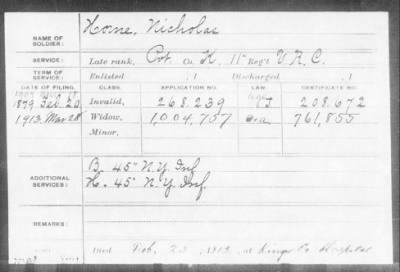 NAME OF SOLDIER: Horne, Nicholas
SERVICE: Late rank, Pvt. Co. K, 11" Reg't V.R.C.
TERM OF SERVICE: Enlisted , 1 Discharged , 1
DATE OF FILING. CLASS. APPLICATION NO. LAW. CERTIFICATE NO.
1879 Feb. 20 Invalid, 268.239 208.672
1913 Mar 28 Widow, 1,004,757 761,855
Minor,
ADDITIONAL SERVICES: B. 45" N.Y. Inf
H. 45" N.Y. Inf.
REMARKS:
Died Feb. 23, 1913, at Kings Co Hospital